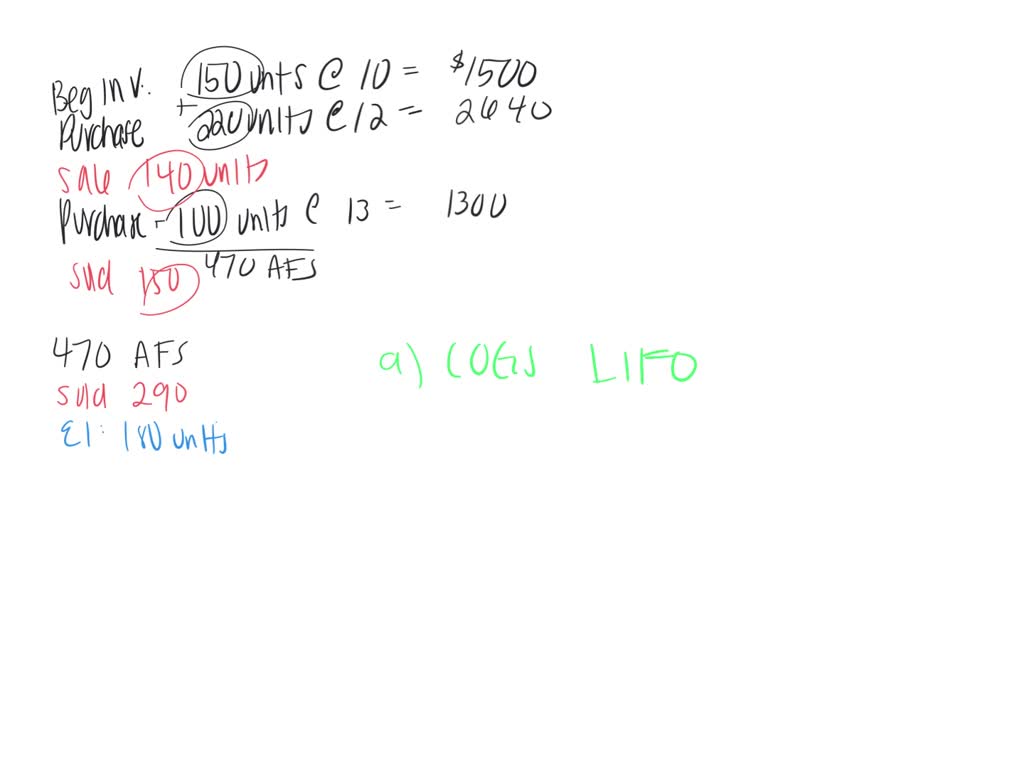 Beg Inv. 150 unts @ 10 = $1500
Purchase + 220 units @ 12 = 2640
Sale 140 units
Purchase - 100 units @ 13 = 1300
470 AFS
Sold 150
470 AFS
Sold 290
EI: 180 units
a) COGS LIFO